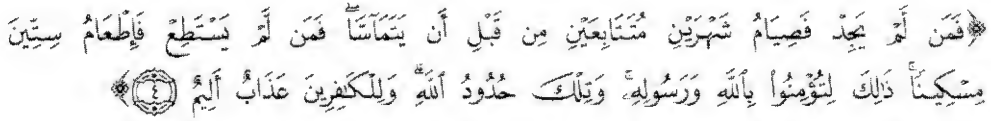 ﴿فَمَن لَّمْ يَجِدْ فَصِيَامُ شَهْرَيْنِ مُتَتَابِعَيْنِ مِن قَبْلِ أَن يَتَمَآسَّا ۖ فَمَن لَّمْ يَسْتَطِعْ فَإِطْعَامُ سِتِّينَ
مِسْكِينًا ۚ ذَٰلِكَ لِتُؤْمِنُوا۟ بِٱللَّهِ وَرَسُولِهِۦ ۚ وَتِلْكَ حُدُودُ ٱللَّهِ ۗ وَلِلْكَـٰفِرِينَ عَذَابٌ أَلِيمٌ ٤﴾